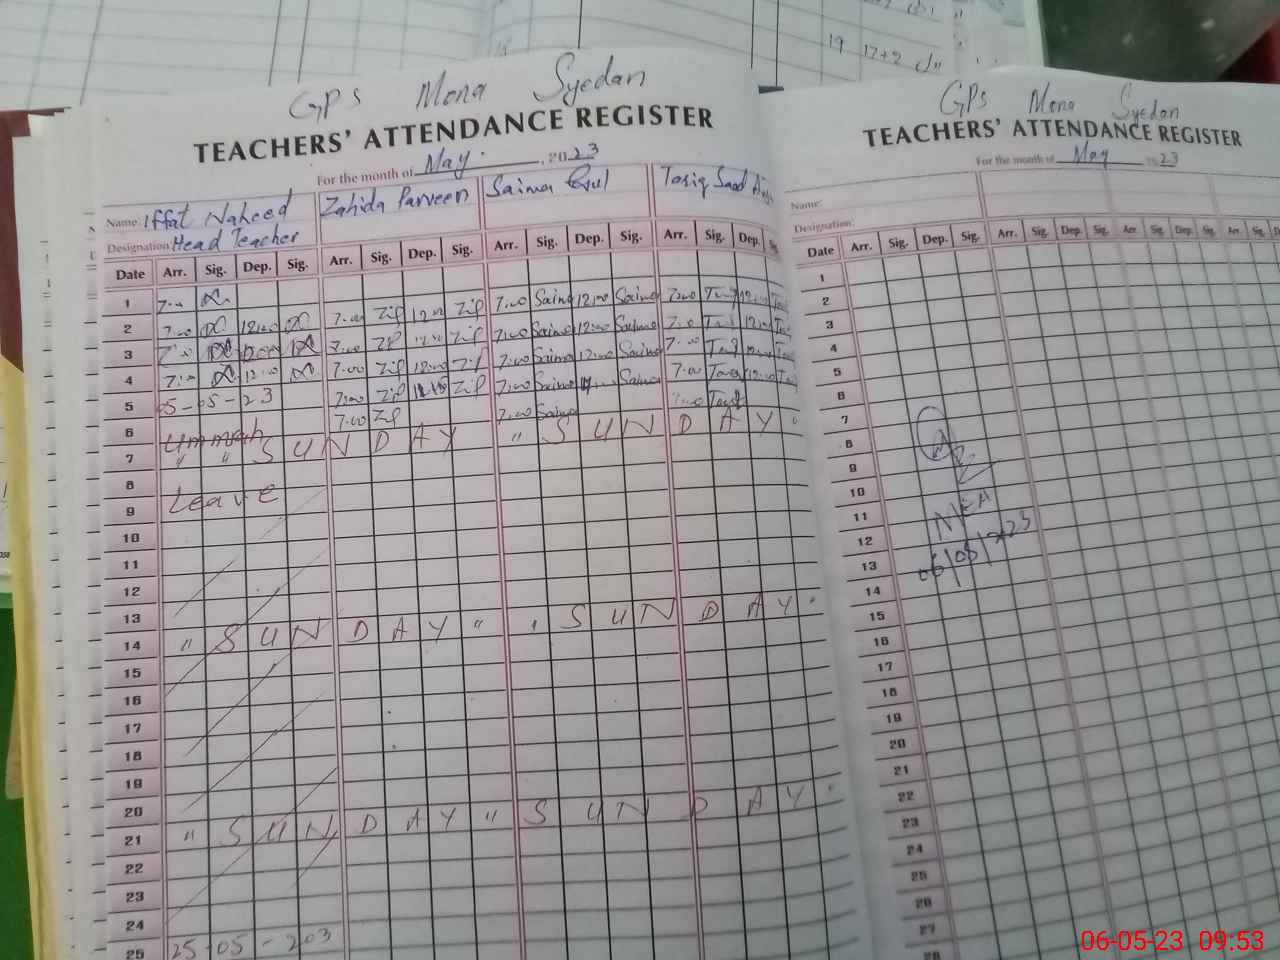 19 17+2
GPS Mona Syedan
TEACHERS' ATTENDANCE REGISTER
For the month of May. , 2023
Name: Iffat Naheed Zahida Parveen Saima Gul Tariq Saad
Designation: Head Teacher
Date Arr. Sig. Dep. Sig. Arr. Sig. Dep. Sig. Arr. Sig. Dep. Sig. Arr. Sig. Dep. Sig.
1 7:00
2 7:00 12:00 7:00 Zip 12:00 Zip 7:00 Saima 12:00 Saima 7:00 12:00
3 7:00 12:00 7:00 Zip 12:00 Zip 7:00 Saima 12:00 Saima 7:00 12:00
4 7:00 12:00 7:00 Zip 12:00 Zip 7:00 Saima 12:00 Saima 7:00 12:00
5 05-05-23 7:00 Zip Zip 7:00 Saima Saima 7:00 12:00
6 Ummrah 7:00 Zip 7:00 Saima 7:00
7 " " SUNDAY " SUNDAY "
8
9 Leave
10
11
12
13
14 " SUNDAY " , SUNDAY "
15
16
17
18
19
20
21 " SUNDAY " SUNDAY "
22
23
24
25 25-05-203
GPS Mona Syedan
TEACHERS' ATTENDANCE REGISTER
For the month of May 2023
Name:
Designation:
Date Arr. Sig. Dep. Sig. Arr. Sig. Dep. Sig. Arr. Sig. Dep. Sig. Arr. Sig.
1
2
3
4
5
6
7
8
9
10
11 MEA
12
13 06/05/2023
14
15
16
17
18
19
20
21
22
23
24
25
26
27
28
06-05-23 09:53